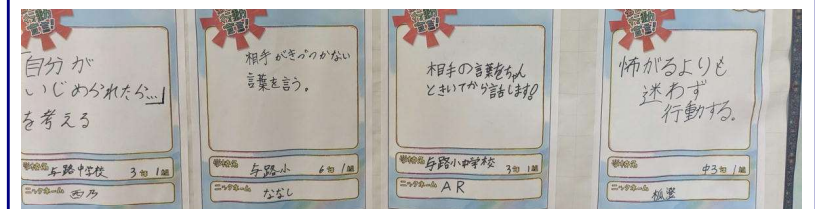 宣言!
自分が
いじめられたら…」
を考える
学校名 与路中学校 3年1組
ニックネーム 西乃
宣言!
相手がきづつかない
言葉を言う。
学校名 与路小 6年1組
ニックネーム ななし
宣言!
相手の言葉をちゃん
ときいてから話します!
学校名 与路小中学校 3年1組
ニックネーム AR
宣言!
怖がるよりも
迷わず
行動する。
学校名 中3年1組
ニックネーム